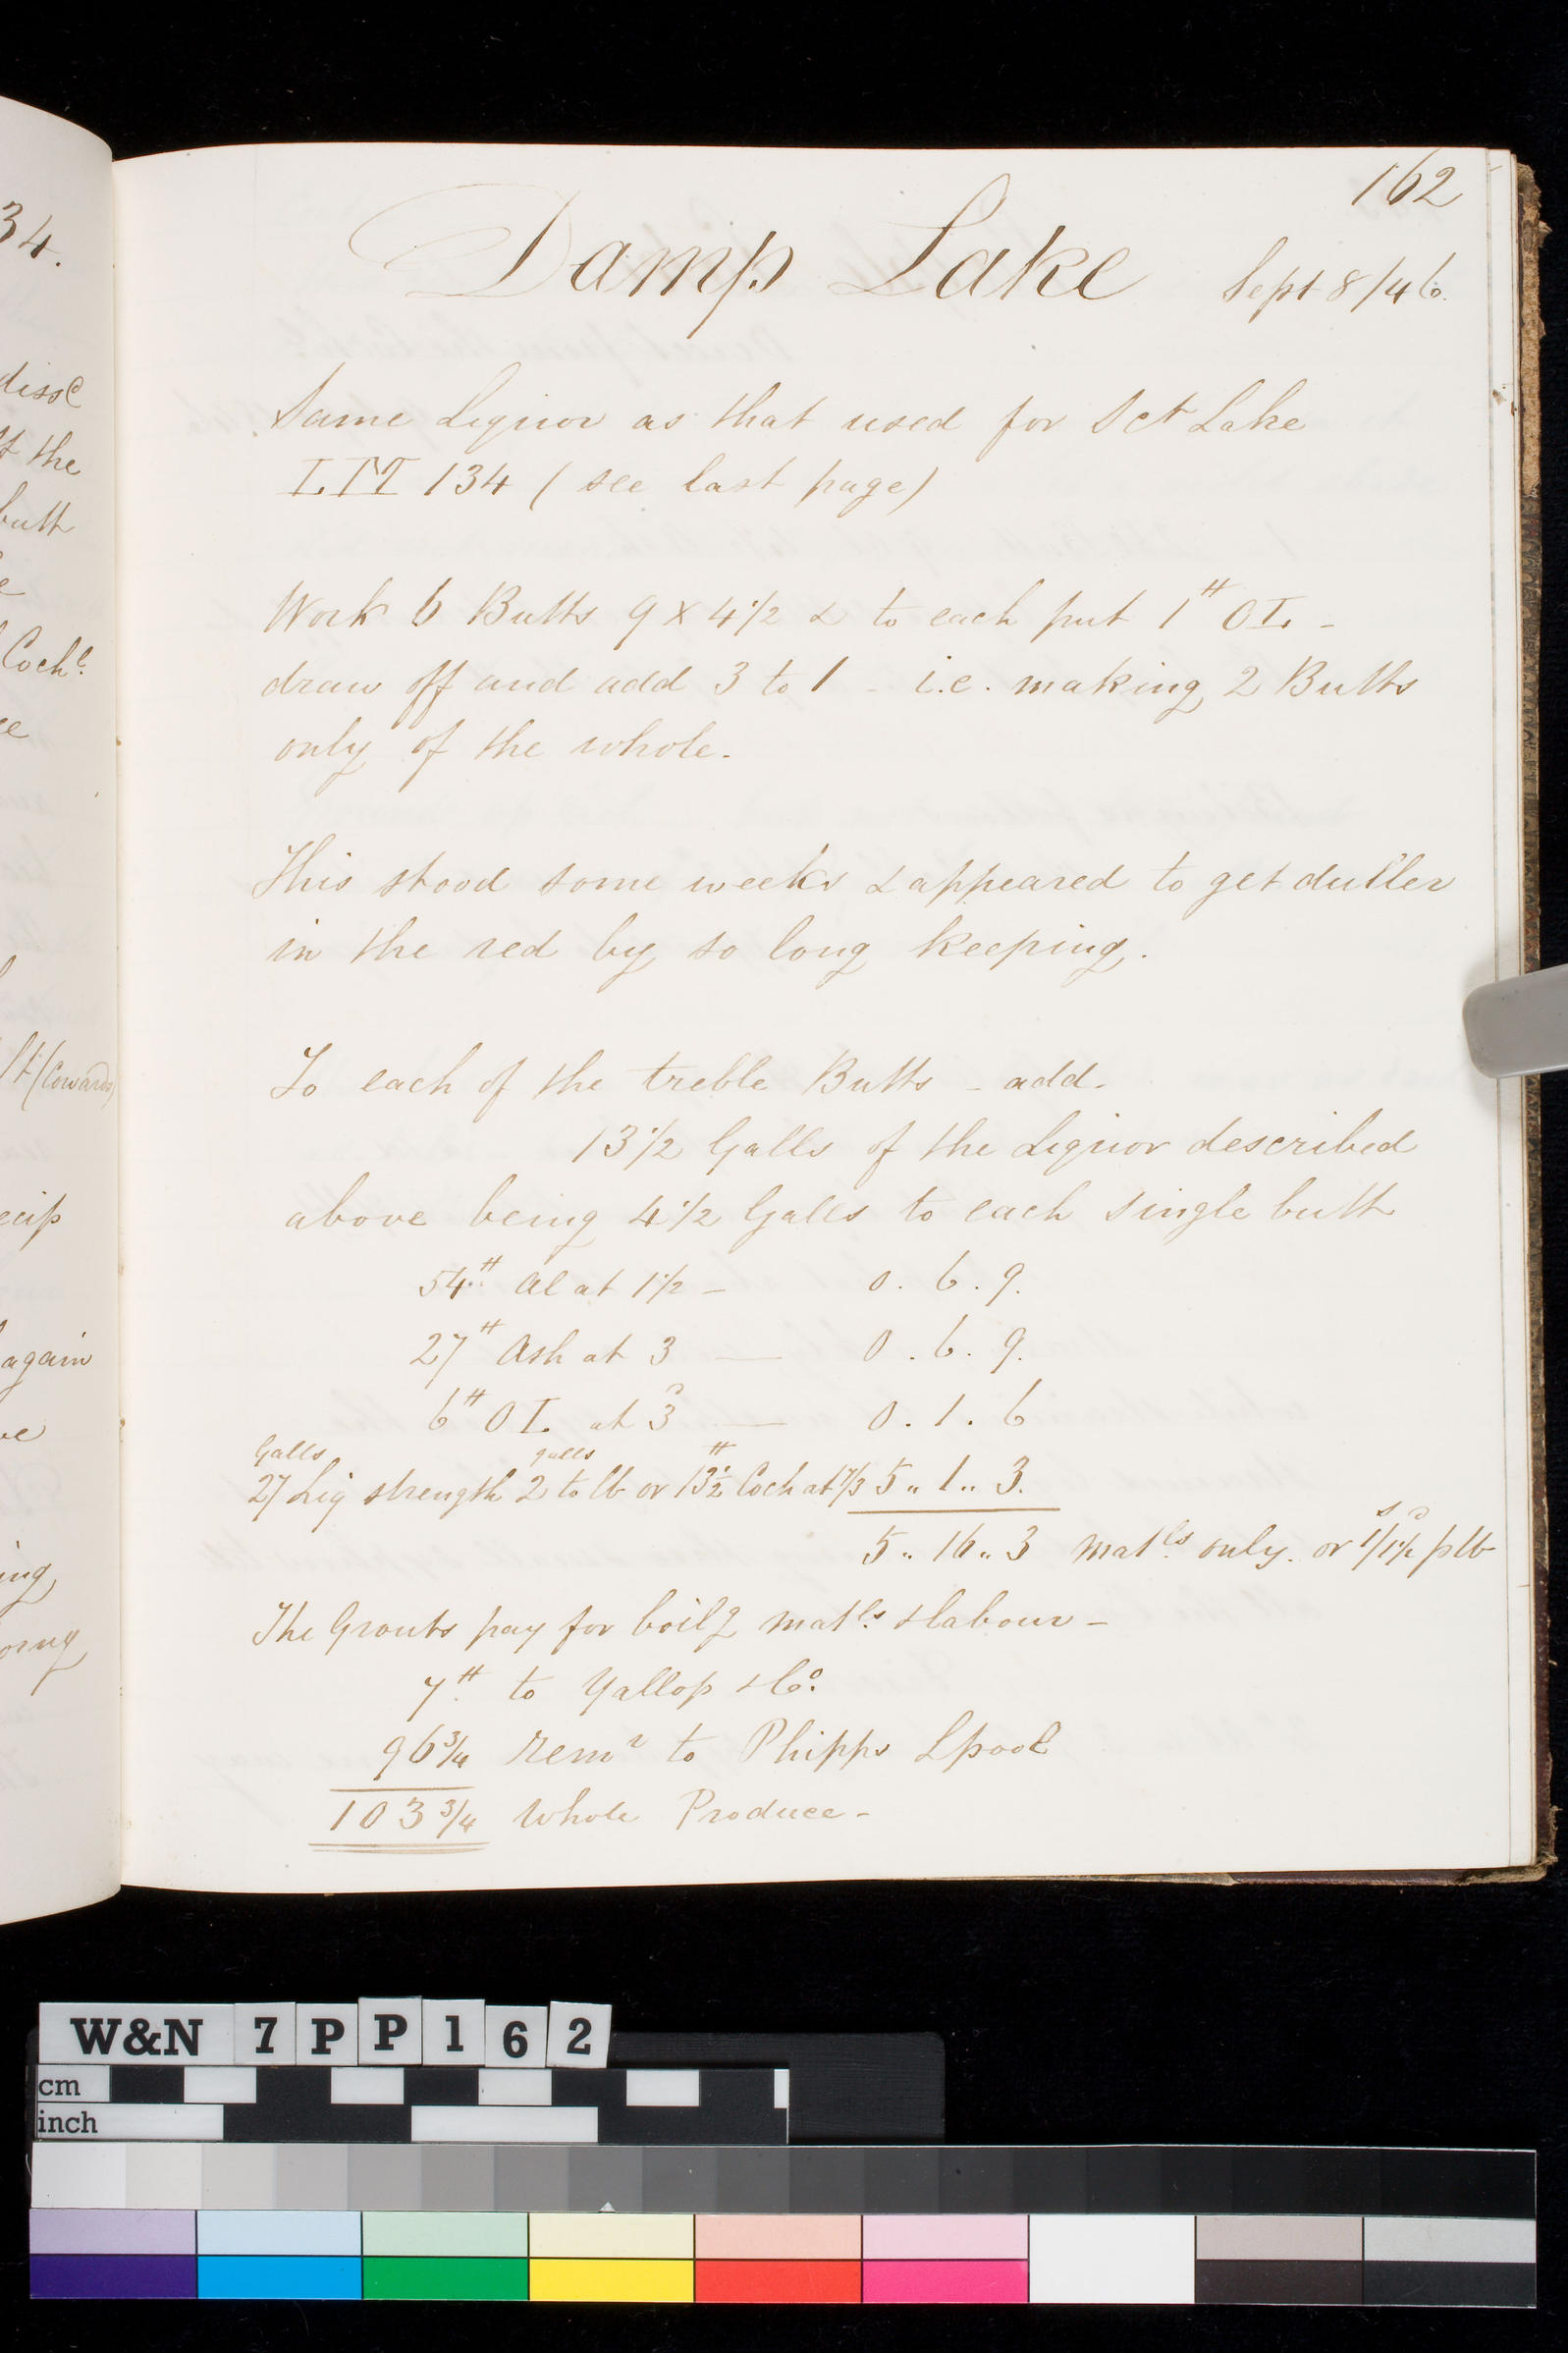 162
Damp Lake Sept 8/46.
Same Liquor as that used for Sct Lake
LM 134 (see last page)
Work 6 Butts 9 x 4 1/2 & to each put 1# OL -
draw off and add 3 to 1 - i.e. making 2 Butts
only of the whole.
This stood some weeks & appeared to get duller
in the red by so long keeping.
To each of the treble Butts - add.
13 1/2 Galls of the Liquor described
above being 4 1/2 Galls to each single butt
54# Al at 1 1/2 - 0. 6. 9.
27# Ash at 3 — 0. 6. 9.
6# O I. at 3 — 0. 1. 6
Galls galls #
27 Liq strength 2 to lb or 13 1/2 Coch at 7/3 5.. 1.. 3.
5.. 16.. 3 matls only. or 1/1 1/2 plb
The Grouts pay for boilg matls & labour -
7# to Yallop & Co.
96 3/4 remr to Phipps Lpool
103 3/4 Whole Produce -
34.
diss
t the
butt
Coch
(Cowards)
ecip
again
ing
W&N 7PP162
cm
inch